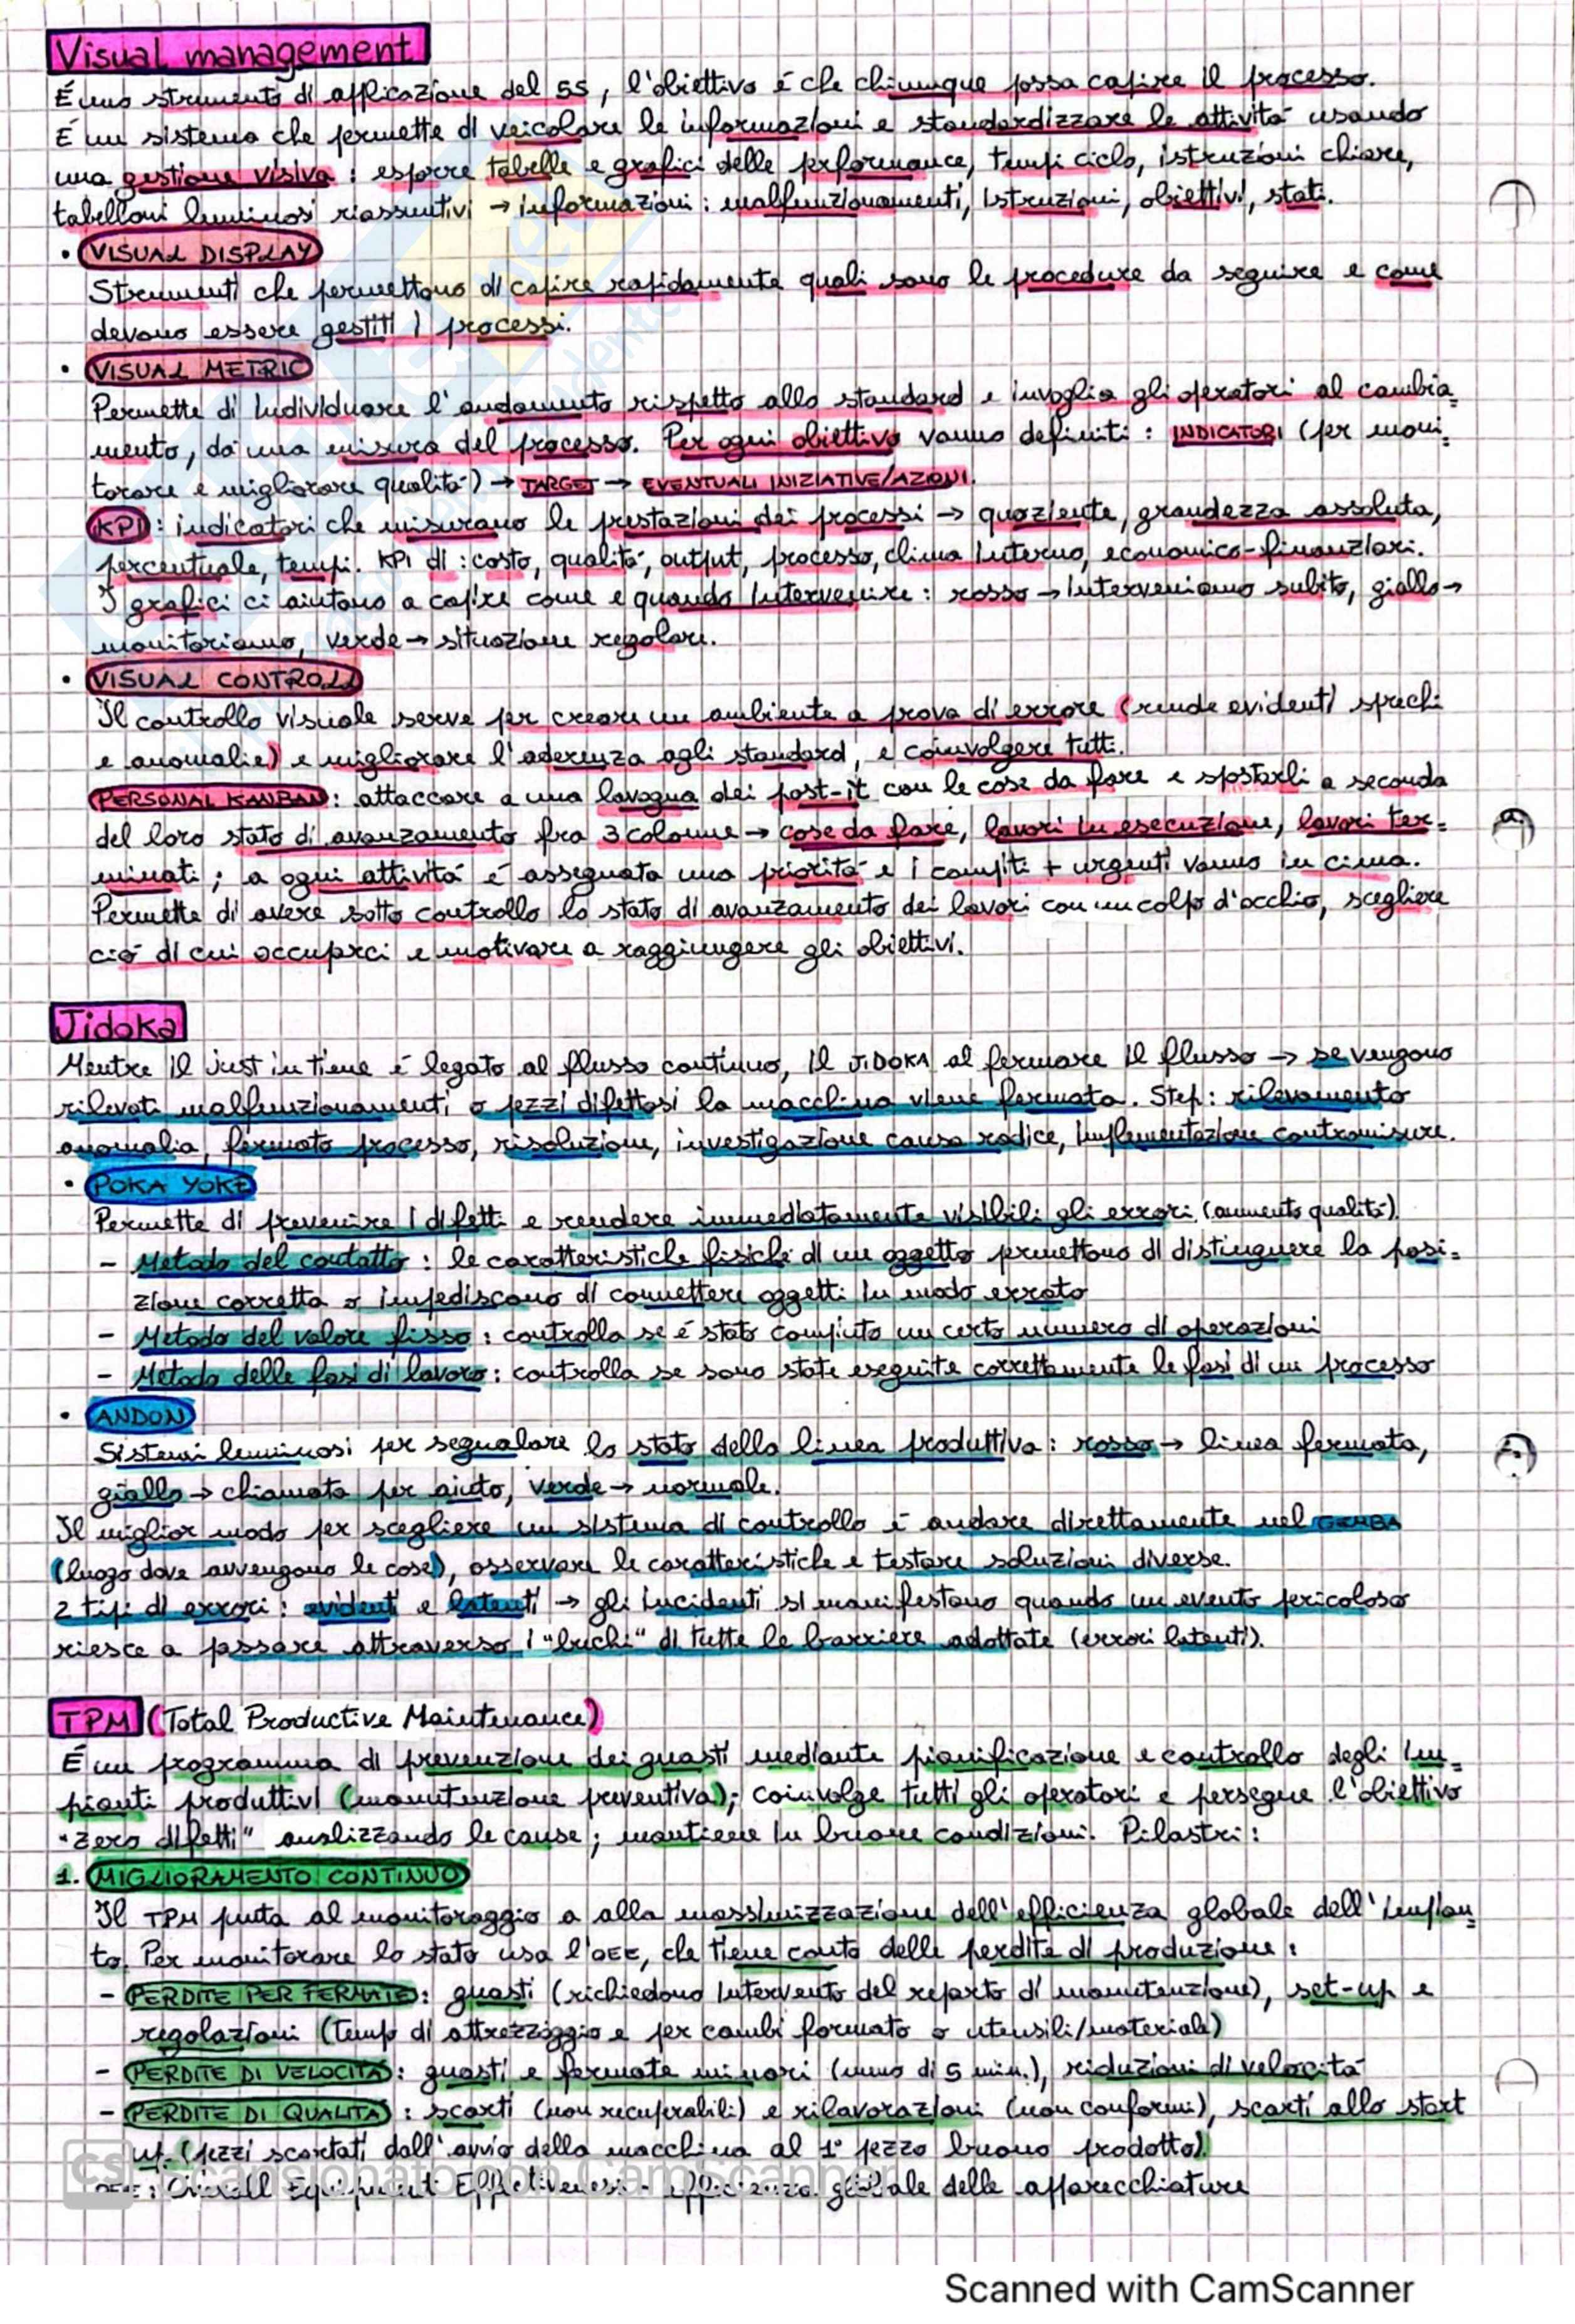 Visual management
É uno strumento di applicazione del 5S, l'obiettivo é che chiunque possa capire il processo.
É un sistema che permette di veicolare le informazioni e standardizzare le attività usando
una gestione visiva: esporre tabelle e grafici delle performance, tempi ciclo, istruzioni chiare,
tabelloni luminosi riassuntivi → informazioni: malfunzionamenti, istruzioni, obiettivi, stati.
• VISUAL DISPLAY
Strumenti che permettono di capire rapidamente quali sono le procedure da seguire e come
devono essere gestiti i processi.
• VISUAL METRIC
Permette di individuare l'andamento rispetto allo standard e invoglia gli operatori al cambia=
mento, dà una misura del processo. Per ogni obiettivo vanno definiti: INDICATORI (per moni=
torare e migliorare qualità) → TARGET → EVENTUALI INIZIATIVE/AZIONI.
KPI: indicatori che misurano le prestazioni dei processi → quoziente, grandezza assoluta,
percentuale, tempi. KPI di: costo, qualità, output, processo, clima interno, economico-finanziari.
I grafici ci aiutano a capire come e quando intervenire: rosso → interveniamo subito, giallo →
monitoriamo, verde → situazione regolare.
• VISUAL CONTROLL
Il controllo visuale serve per creare un ambiente a prova di errore (rende evidenti sprechi
e anomalie) e migliorare l'aderenza agli standard, e coinvolgere tutti.
PERSONAL KANBAN: attaccare a una lavagna dei post-it con le cose da fare e spostarli a seconda
del loro stato di avanzamento fra 3 colonne → cose da fare, lavori in esecuzione, lavori ter=
minati; a ogni attività é assegnata una priorità e i compiti + urgenti vanno in cima.
Permette di avere sotto controllo lo stato di avanzamento dei lavori con un colpo d'occhio, scegliere
ciò di cui occuparci e motivare a raggiungere gli obiettivi.
Jidoka
Mentre il just in time é legato al flusso continuo, il JIDOKA al fermare il flusso → se vengono
rilevati malfunzionamenti o pezzi difettosi la macchina viene fermata. Step: rilevamento
anomalia, fermata processo, risoluzione, investigazione causa radice, implementazione contromisure.
• POKA YOKE
Permette di prevenire i difetti e rendere immediatamente visibili gli errori (aumento qualità).
- Metodo del contatto: le caratteristiche fisiche di un oggetto permettono di distinguere la posi=
zione corretta o impediscono di connettere oggetti in modo errato
- Metodo del valore fisso: controlla se é stato compiuto un certo numero di operazioni
- Metodo delle fasi di lavoro: controlla se sono state eseguite correttamente le fasi di un processo
• ANDON
Sistemi luminosi per segnalare lo stato della linea produttiva: rosso → linea fermata,
giallo → chiamata per aiuto, verde → normale.
Il miglior modo per scegliere un sistema di controllo é andare direttamente nel GEMBA
(luogo dove avvengono le cose), osservare le caratteristiche e testare soluzioni diverse.
2 tipi di errori: evidenti e latenti → gli incidenti si manifestano quando un evento pericoloso
riesce a passare attraverso i "buchi" di tutte le barriere adottate (errori latenti).
TPM (Total Productive Maintenance)
É un programma di prevenzione dei guasti mediante pianificazione e controllo degli im=
pianti produttivi (manutenzione preventiva); coinvolge tutti gli operatori e persegue l'obiettivo
"zero difetti" analizzando le cause; mantiene in buone condizioni. Pilastri:
1. MIGLIORAMENTO CONTINUO
Il TPM punta al monitoraggio a alla massimizzazione dell'efficienza globale dell'impian=
to. Per monitorare lo stato usa l'OEE, che tiene conto delle perdite di produzione:
- PERDITE PER FERMATE: guasti (richiedono intervento del reparto di manutenzione), set-up e
regolazioni (temp di attrezzaggio e per cambi formato o utensili/materiale)
- PERDITE DI VELOCITÀ: guasti e fermate minori (meno di 5 min.), riduzioni di velocità
- PERDITE DI QUALITÀ: scarti (non recuperabili) e rilavorazioni (non conformi), scarti allo start
up (pezzi scartati dall'avvio della macchina al 1° pezzo buono prodotto).
OEE: Overall Equipment Effectiveness - efficienza globale delle apparecchiature
CS Scansionato con CamScanner
Scanned with CamScanner